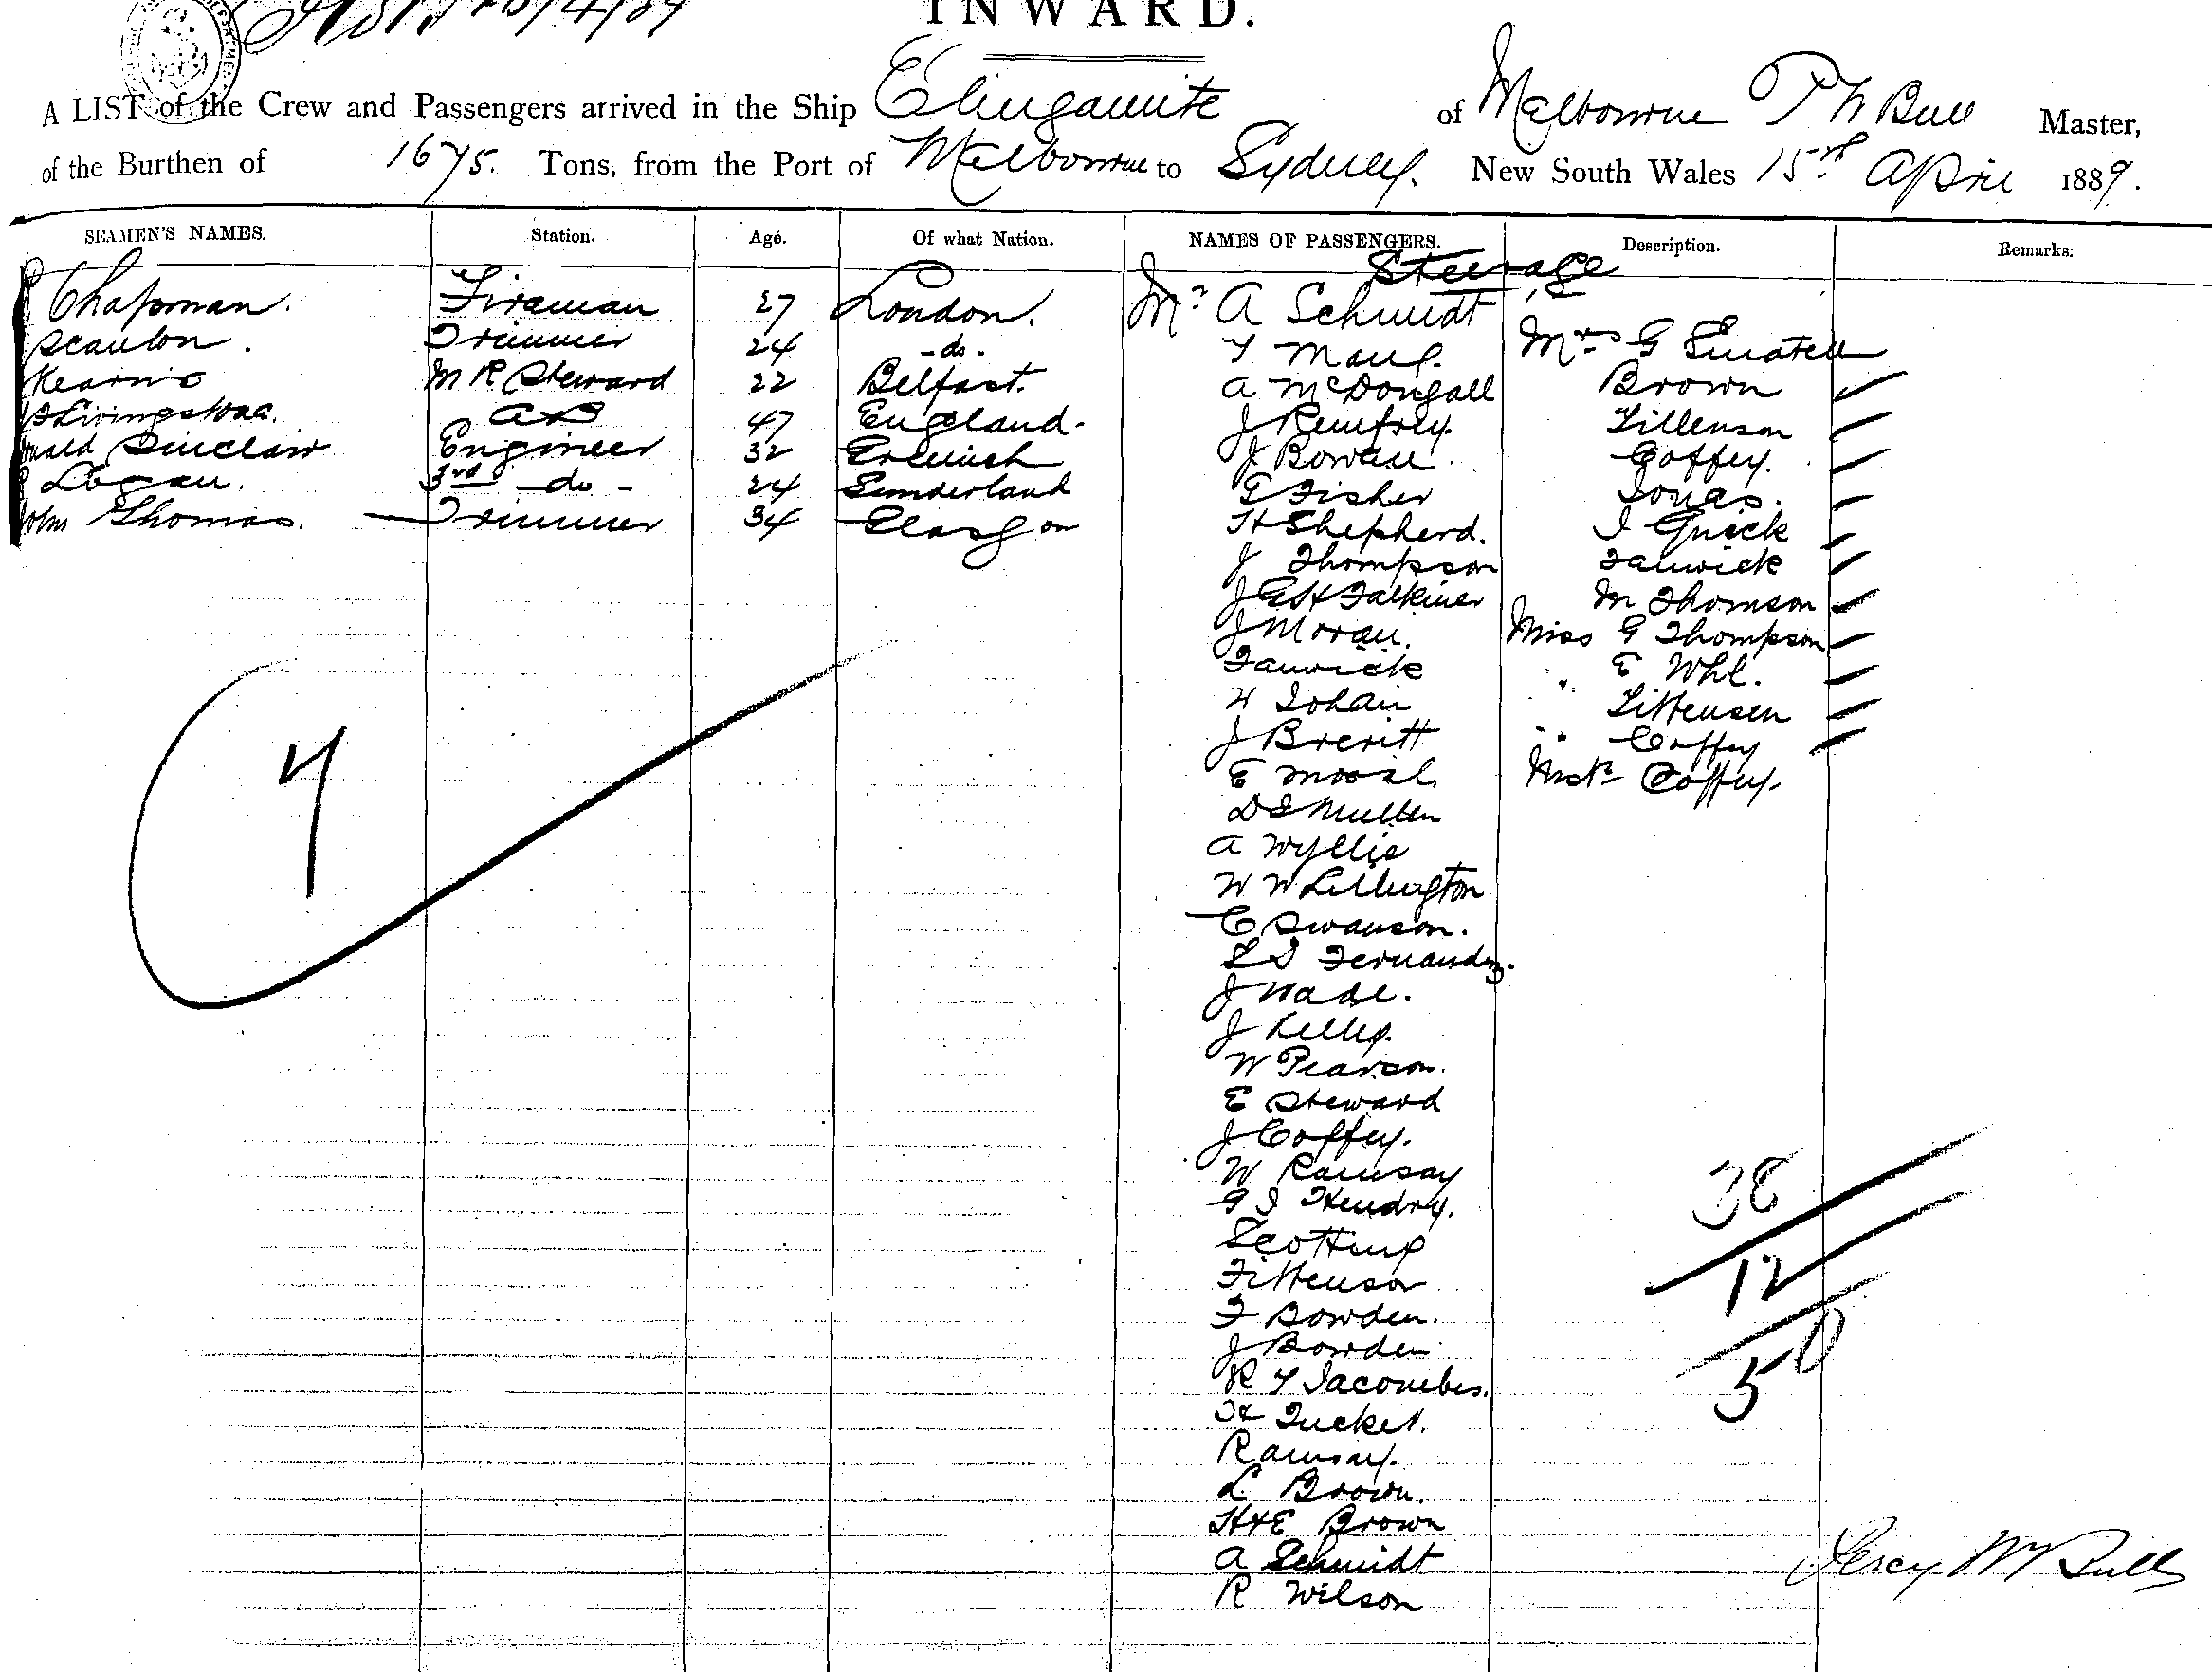 INWARD.
A LIST of the Crew and Passengers arrived in the Ship Elingamite of Melbourne P W Bull Master,
of the Burthen of 1675. Tons, from the Port of Melbourne to Sydney. New South Wales 15th April 1889.
SEAMEN'S NAMES. Station. Age. Of what Nation. NAMES OF PASSENGERS. Description. Remarks.
Steerage
Chapman. Fireman 27 London. Mr A Schmidt
Scanlon. Trimmer 24 -do- Mrs G
Kearns M R Steward 22 Belfast. A McDougall Brown
Livingstone. AB 47 England. J Remfrey. Tillenson
Sinclair Engineer 32 Greenish J Bowan Coffey.
Logan. 3rd -do- 24 Sunderland Fisher Jonas.
John Thomas. Trimmer 34 Glasgow H Shepherd. Quick
J Thompson Fanwick
J G H Falkiner M Thomson
J Moran. Miss G Thompson
Fanwick " E
H
J Breritt " Coffey
E Coffey.
Mullen
A Wyllie
W W Lillington
C Swanson.
Fernandez.
J Wade.
J
W Pearson.
E Steward
J Coffey.
W Ramsay
G J Hendry.
Scotting
Fittenson
F Bowden.
J Bowden
R T Jacombes.
H Tucket.
Ramsay.
L Brown.
H & E Brown
A Schmidt
R Wilson
7
38
12
50
Percy W Bull